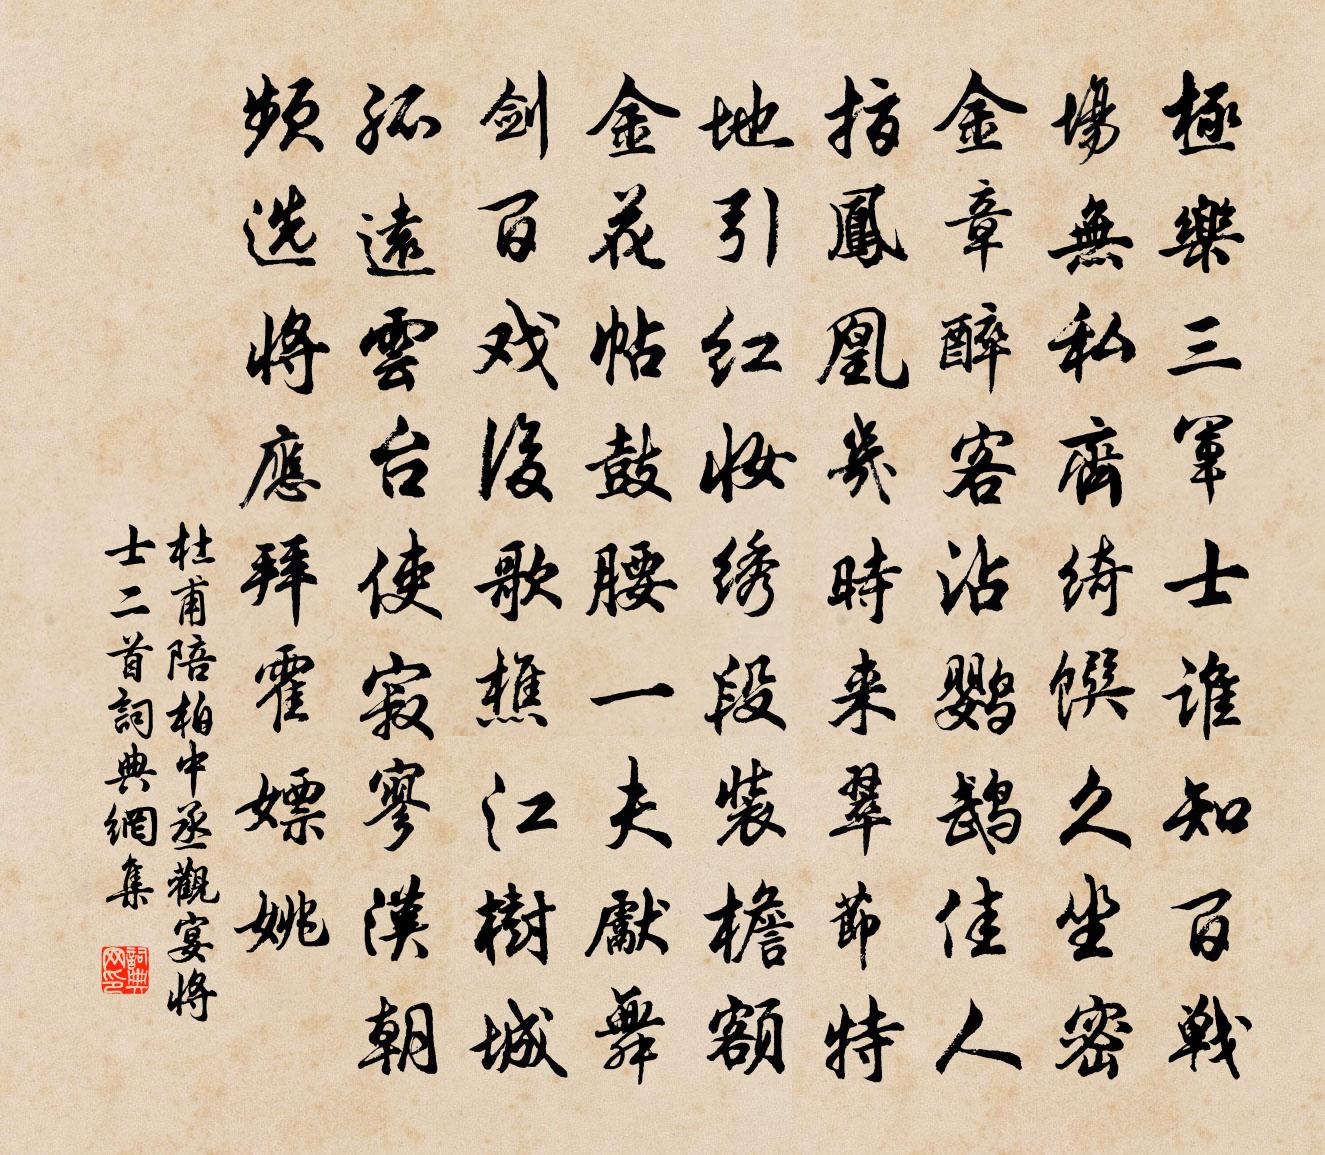 極樂三軍士誰知百戰
場無私齊綺饌久坐密
金章醉客沾鸚鵡佳人
指鳳凰幾時来翠節特
地引红妆绣段装檐額
金花帖鼓腰一夫獻舞
剑百戏後歌樵江樹城
孤遠雲台使寂寥漢朝
頻选將應拜霍嫖姚
杜甫陪柏中丞觀宴將
士二首詞典網集
詞典网印